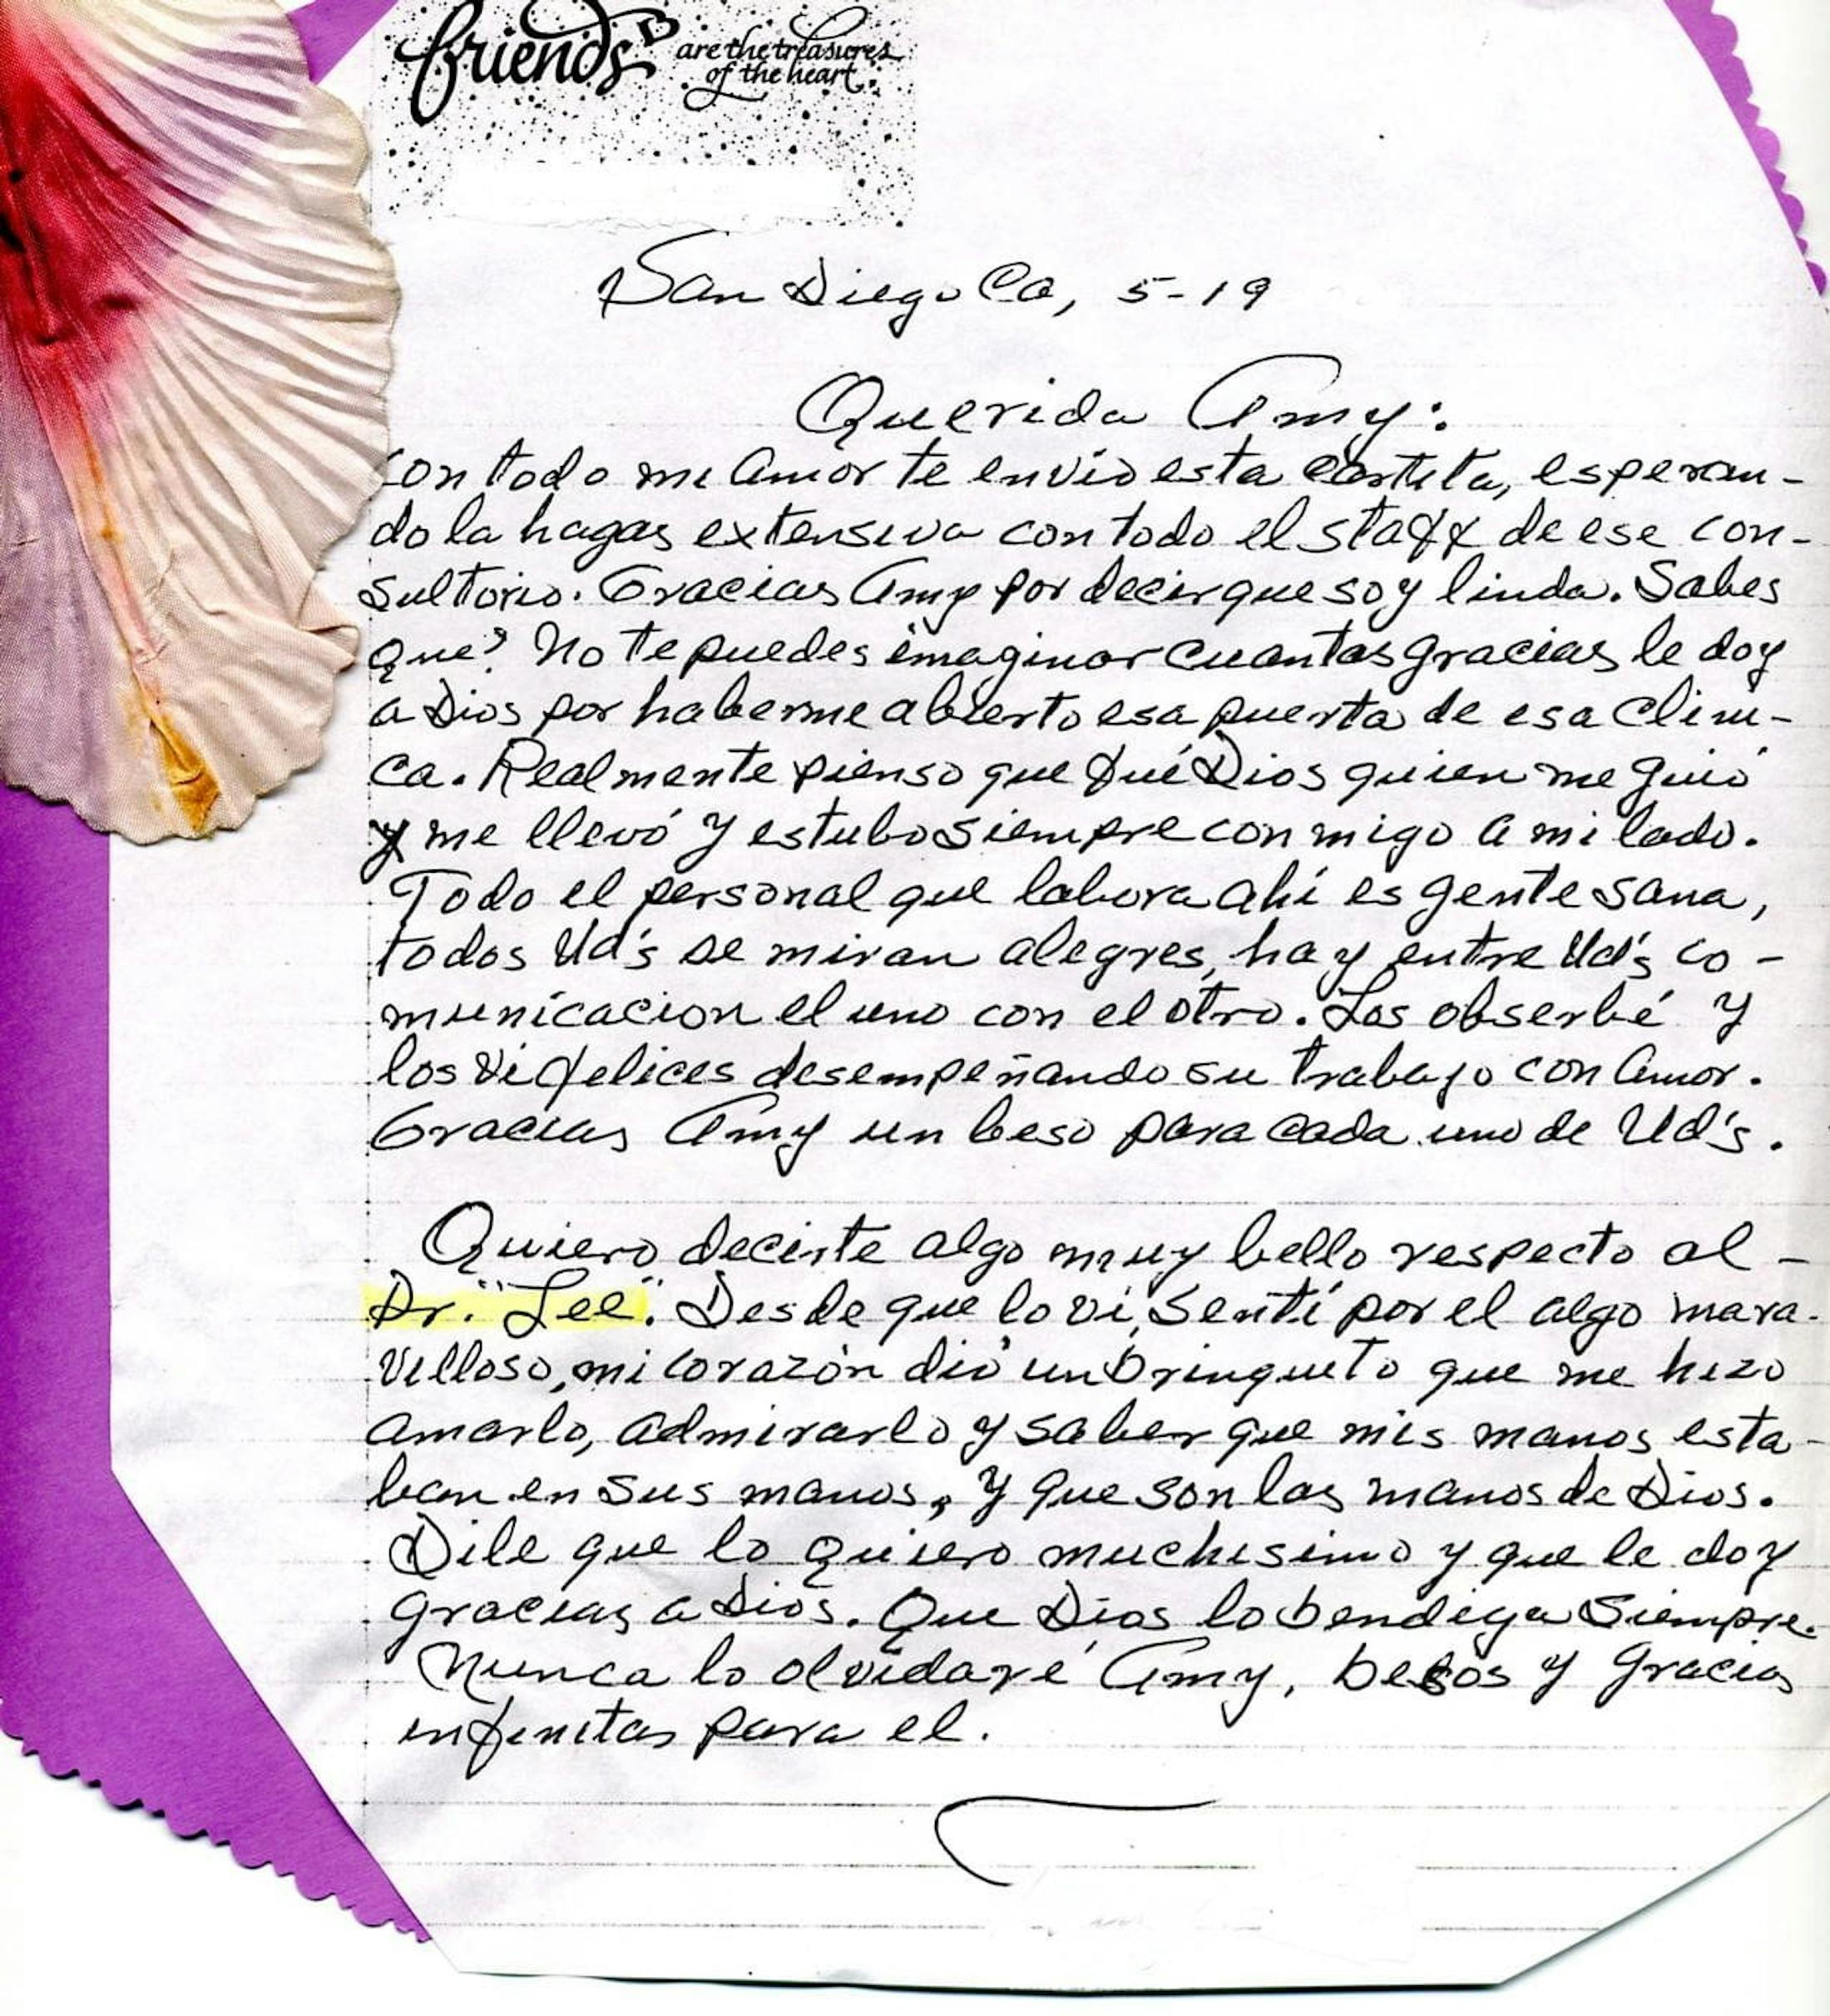 friends are the treasures
of the heart
San Diego Ca, 5-19
Querida Amy:
Con todo mi Amor te envio esta cartita, esperan-
do la hagas extensiva con todo el staff de ese con-
sultorio. Gracias Amy por decir que soy linda. Sabes
que? No te puedes imaginar cuantas gracias le doy
a Dios por haberme abierto esa puerta de esa Clini-
ca. Realmente pienso que fué Dios quien me guió
y me llevó y estubo siempre conmigo a mi lado.
Todo el personal que labora ahí es gente sana,
todos Ud's se miran alegres, hay entre Ud's co-
municacion el uno con el otro. Los obserbé y
los vi felices desempeñando su trabajo con Amor.
Gracias Amy un beso para cada uno de Ud's.
Quiero decirte algo muy bello respecto al -
Dr. "Lee". Desde que lo vi, Sentí por el algo mara-
villoso, mi corazón dió un brinquito que me hizo
amarlo, admirarlo y saber que mis manos esta-
ban en sus manos, y que son las manos de Dios.
Dile que lo quiero muchisimo y que le doy
gracias a Dios. Que Dios lo bendiga Siempre.
Nunca lo olvidaré Amy, besos y gracias
infinitas para el.